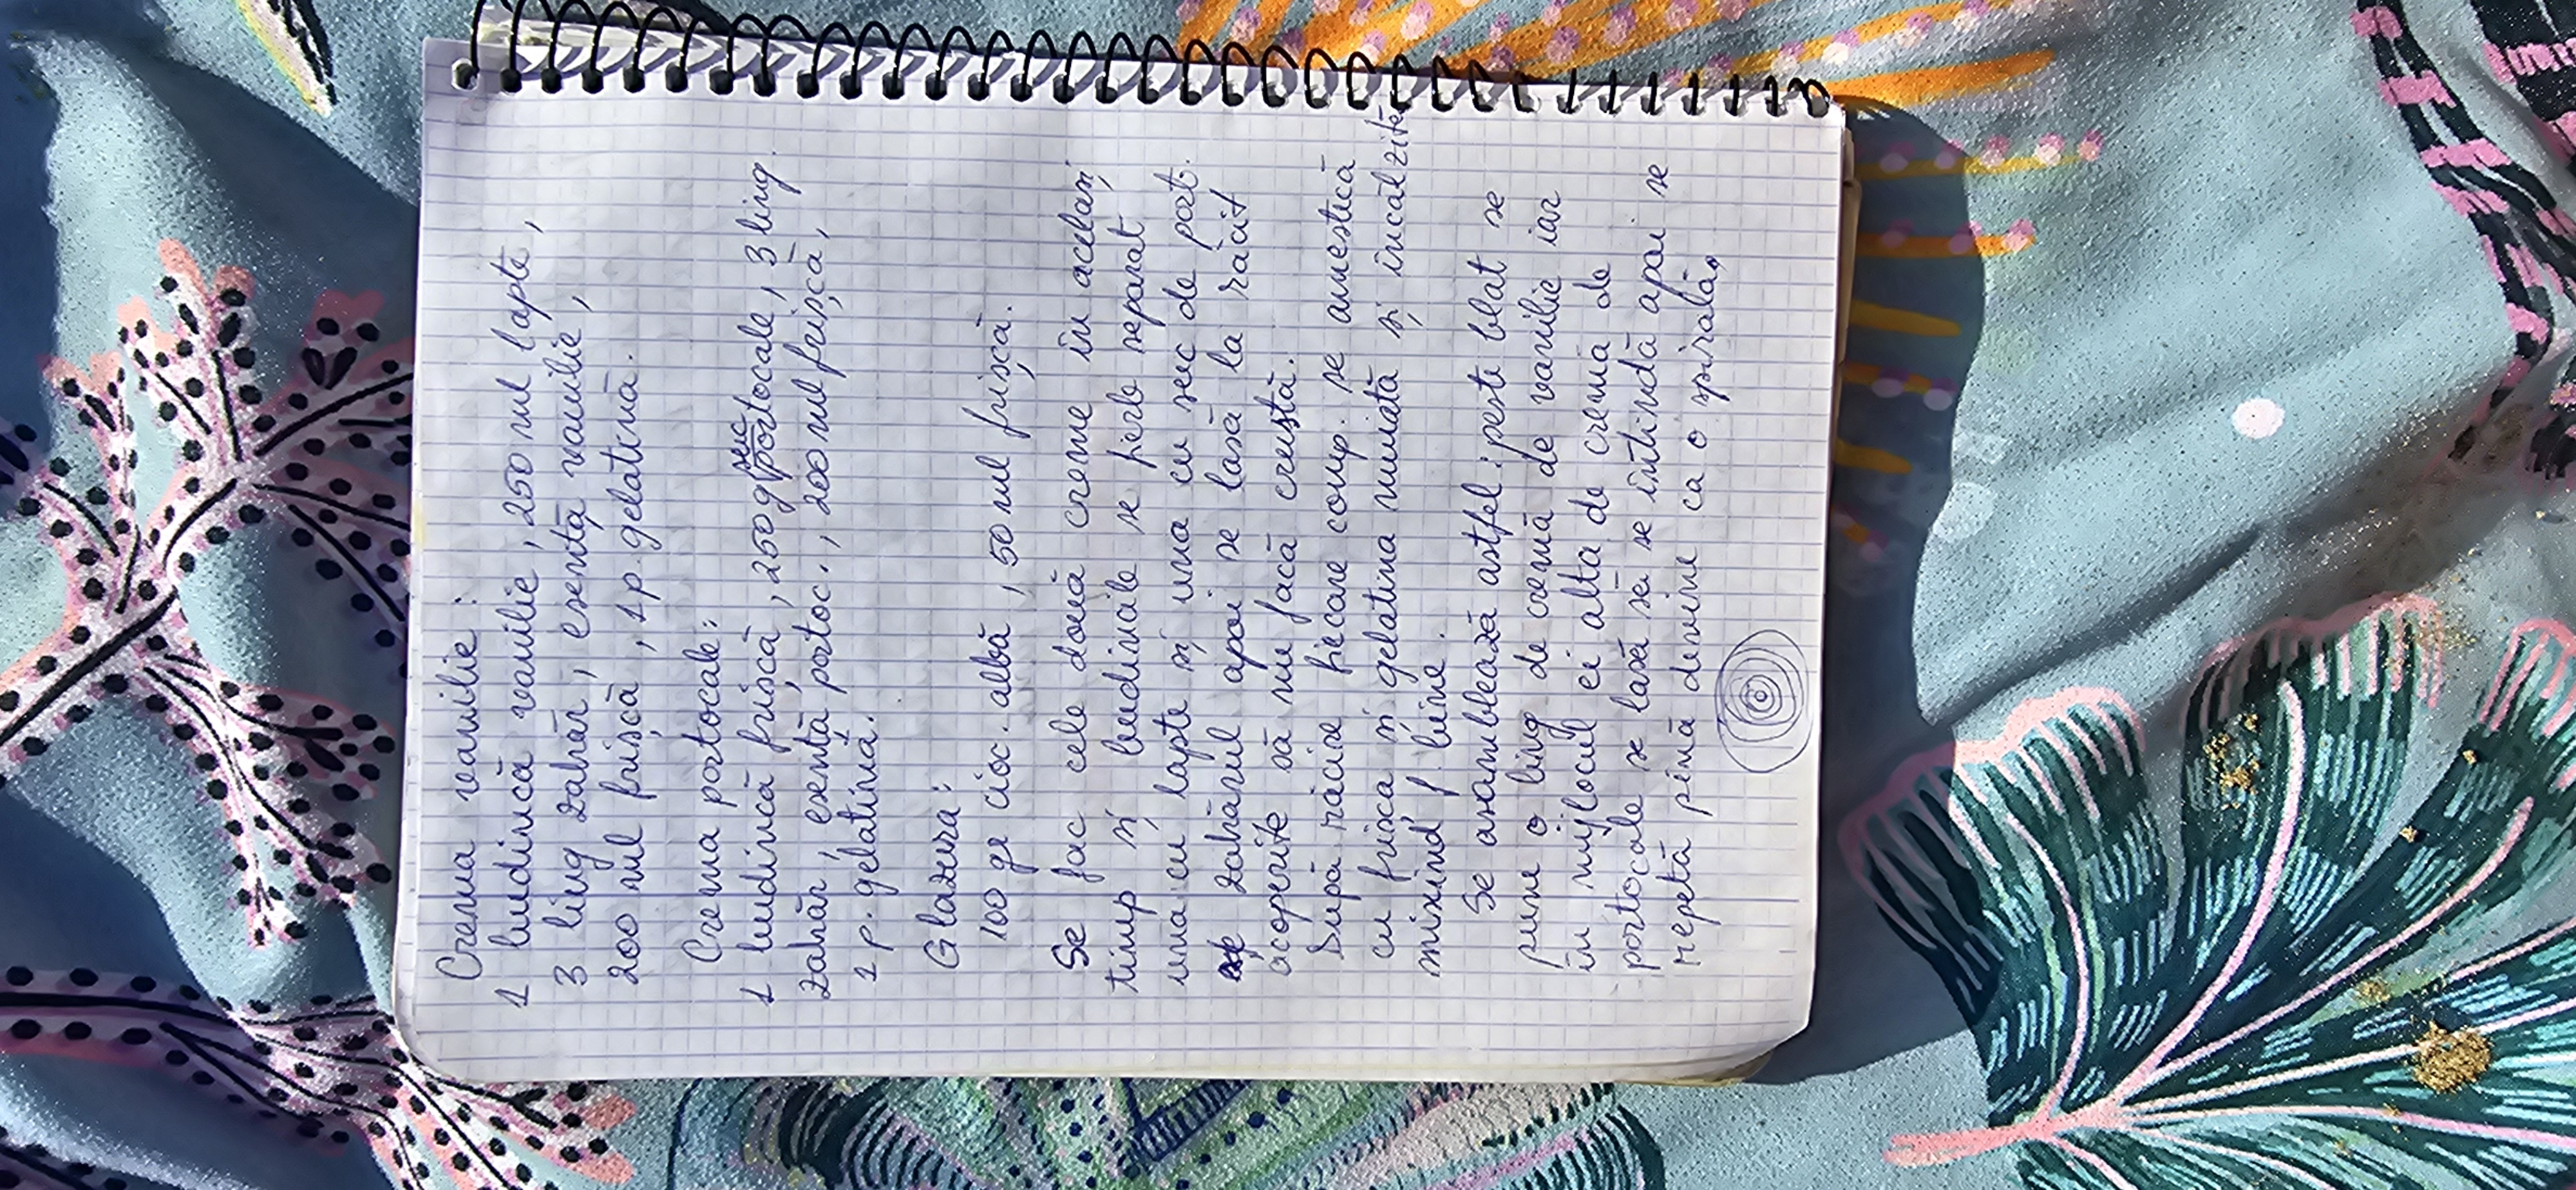 Crema vanilie :
1 budincă vanilie , 250 ml lapte ,
3 ling zahăr , esență vanilie ,
200 ml frișcă , 1 p. gelatină .
Crema portocale :
1 budincă frișcă , 250 g suc portocale , 3 ling.
zahăr , esență portoc. , 200 ml frișcă ,
1 p. gelatină .
Glazura :
100 gr cioc. albă , 50 ml frișcă .
Se fac cele două creme în același
timp și budincile se fierb separat
una cu lapte și una cu suc de port.
zahărul apoi se lasă la răcit
acoperite să nu facă crustă .
După răcire fiecare comp. se amestică
cu frișca și gelatina muiată și încălzită
mixînd f. bine .
Se asamblează astfel : peste blat se
pune o ling de cremă de vanilie iar
în mijlocul ei alta de cremă de
portocale se lasă să se întindă apoi se
repetă pînă devine ca o spirală .